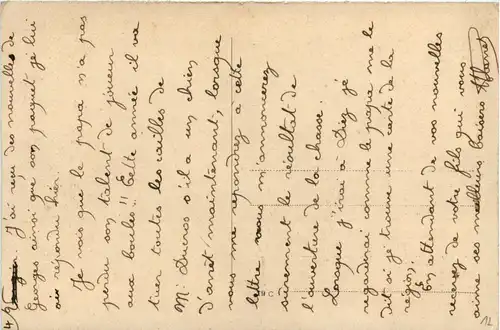 J'ai reçu des nouvelles de
Georges ainsi que son paquet je lui
ai répondu hier.
Je vois que le papa n'a pas
perdu son talent de joueur
aux boules!! Cette année il va
tuer toutes les cailles de
M. Ducros s'il a un chien
d'arrêt maintenant, lorsque
vous me répondrez à cette
lettre vous m'annoncerez
sûrement le résultat de
l'ouverture de la chasse.
Lorsque j'irai à Diez je
regarderai comme le papa me le
dit si je trouve une carte de la
région.
En attendant de vos nouvelles
recevez de votre fils qui vous
aime ses meilleurs baisers
12